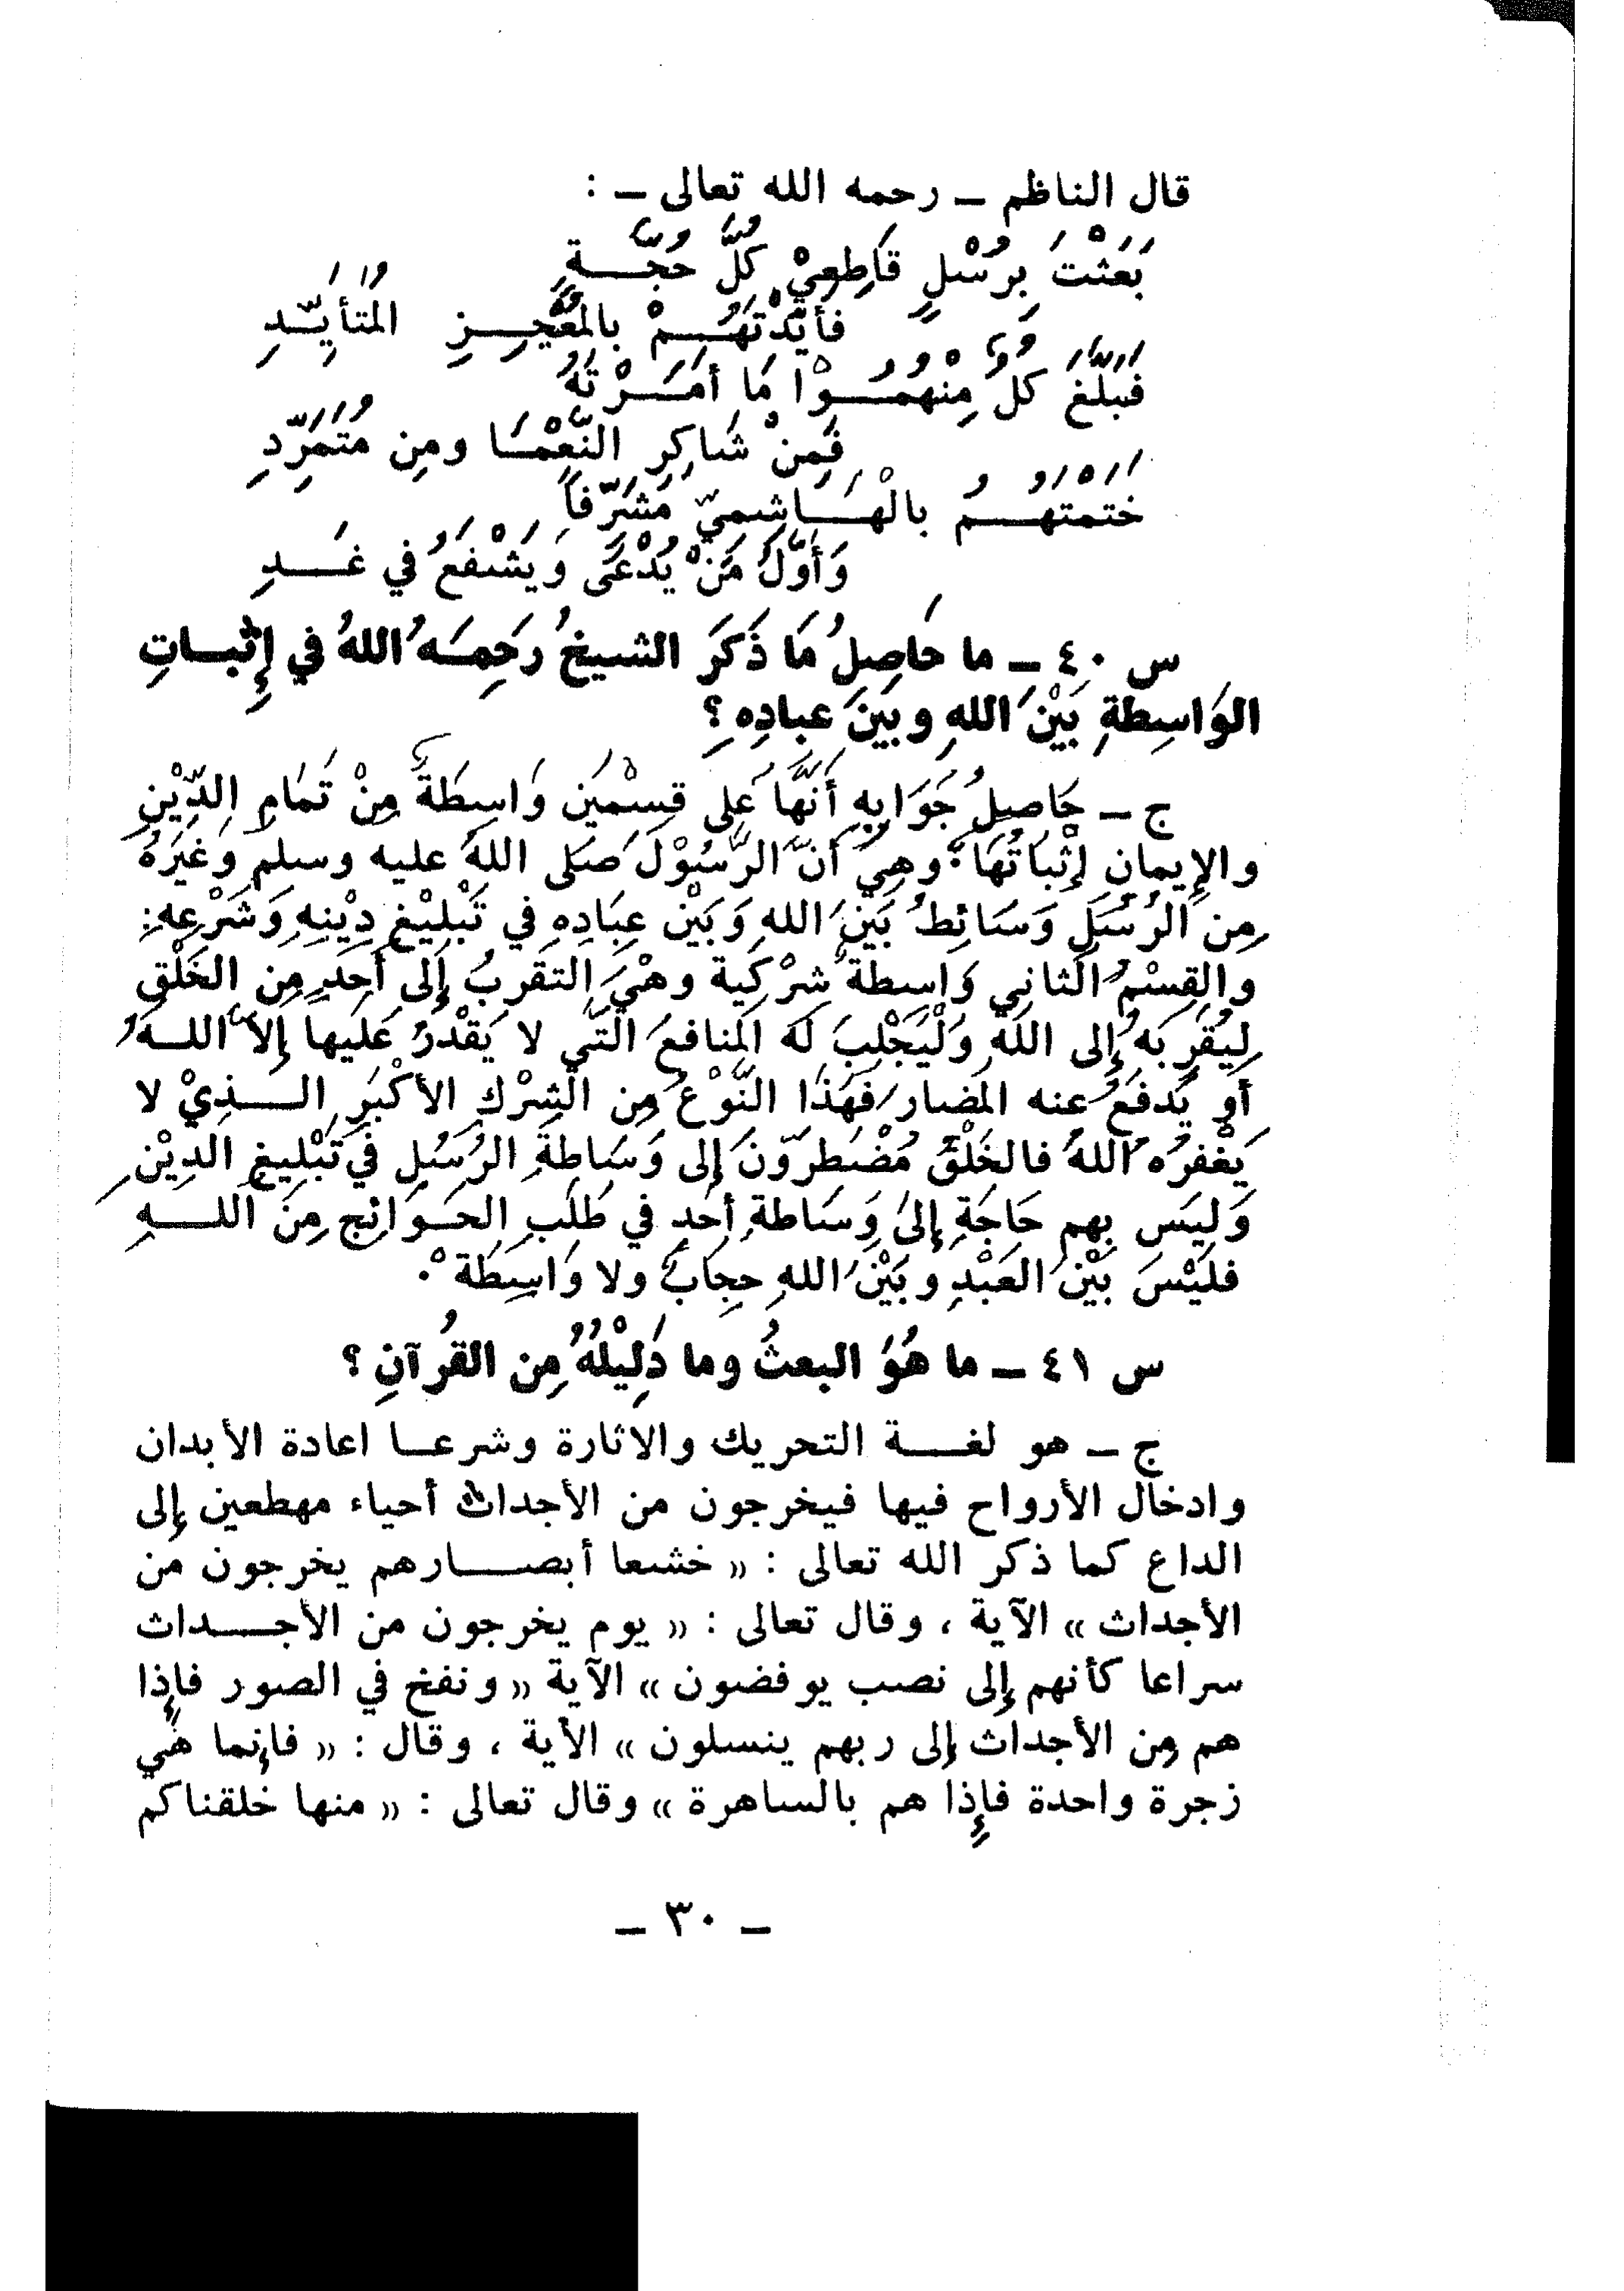 قال الناظم ــ رحمه الله تعالى ــ :
بَعَثْتَ بِرُسْلٍ قَاطِعِيْ كُلَّ حُجَّــةٍ
فأَيَّدْتَهُــمْ بالمُعْجِــزِ المُتأيِّــدِ
فَبَلَّغَ كُلٌ مِنْهُمُــوْا مَا أَمَــرْتَهُ
فَمِنْ شَاكِرِ النَّعْمَــا ومِن مُتَمَرِّدِ
خَتَمْتَهُــمُ بالْهَــاشِمِيّ مُشَرَّفاً
وَأَوَّلُ مَنْ يُدْعَى وَيَشْفَعُ في غَــدِ
س ٤٠ ــ ما حَاصِلُ مَا ذَكَرَ الشيخُ رَحِمَــهُ اللهُ في إِثْبــاتِ
الوَاسِطةِ بَيْنَ اللهِ وبَيْنَ عبادِهِ ؟
ج ــ حَاصِلُ جَوَابِهِ أَنَّهَا عَلى قِسْمَين وَاسِطَةٌ مِنْ تَمَامِ الدِّيْنِ
والإِيمانِ إِثْبَاتُهَا : وهِيَ أَنَّ الرَّسُوْلَ صَلى اللهُ عليه وسلم وَغَيْرَهُ
مِن الرُسُلِ وَسَائِطُ بَيْنَ اللهِ وَبَيْن عِبَادِهِ في تَبْلِيْغِ دِيْنِهِ وَشَرْعِهِ :
والقِسْمُ الثاني وَاسِطةٌ شِرْكَية وهْيَ التقَربُ إِلى أَحَدٍ مِن الخَلْقِ
لِيُقَرِبَهُ إِلى اللهِ وَلْيَجْلِبَ لَهُ المَنافعَ الَّتي لا يَقْدرُ عَليها إِلاَّ اللــهُ
أو يَدفَعُ عنه المَضار فهَذَا النَّوْعُ مِن الشِرْكِ الأكْبَرِ الــذِيْ لا
يَغْفرُه اللهُ فالخَلْقُ مُضْطرّوْنَ إِلى وَسَاطَةِ الرُسُلِ في تَبْلِيغِ الدِيْنِ
وَلَيَس بهم حَاجَةٍ إِلىٰ وَسَاطةِ أحَدٍ في طَلَبِ الحَــوَائِجِ مِنَ اللــهِ
فلَيْسَ بَيْنَ العَبْدِ وبَيْنَ اللهِ حِجَابٌ ولا وَاسِطَة ْ.
س ٤١ ــ ما هُوَ البعثُ وما دَلِيْلُهُ مِن القُرآنِ ؟
ج ــ هو لغــة التحريك والاثارة وشرعــا اعادة الأبدان
وادخال الأرواح فيها فيخرجون من الأجداث أحياء مهطعين إلى
الداع كما ذكر الله تعالى : « خشعا أبصــارهم يخرجون من
الأجداث » الآية ، وقال تعالى : « يوم يخرجون من الأجــداث
سراعا كأنهم إلى نصب يوفضون » الآية « ونفخ في الصور فإِذا
هم مِن الأجداث إلى ربهم ينسلون » الأية ، وقال : « فإنما هي
زجرة واحدة فإِذا هم بالساهرة » وقال تعالى : « منها خلقناكم
ــ ٣٠ ــ